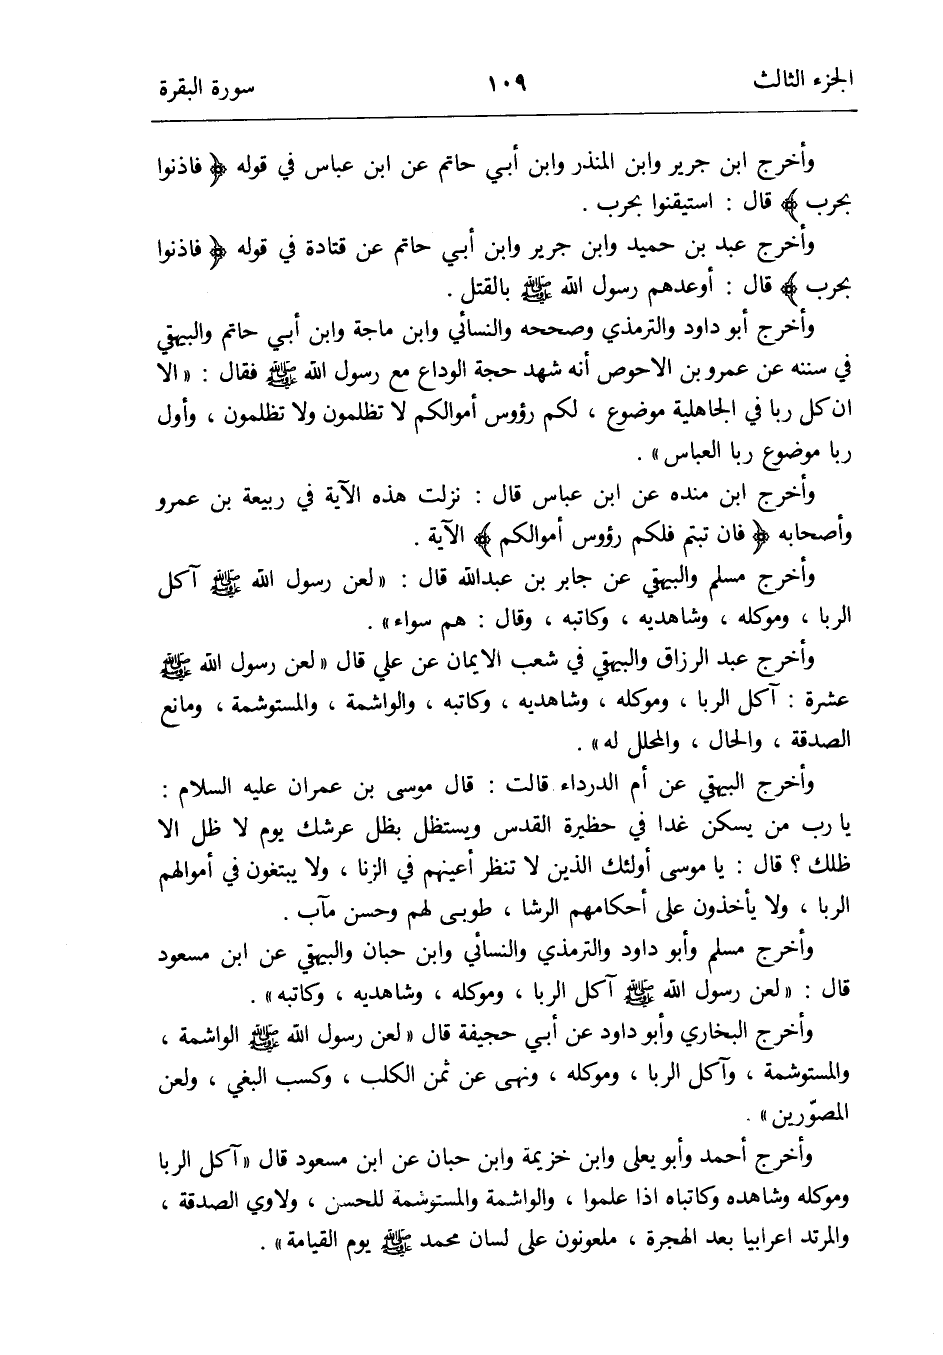 الجزء الثالث ١٠٩ سورة البقرة
وأخرج ابن جرير وابن المنذر وابن أبـي حاتم عن ابن عباس في قوله ﴿ فاذنوا
بحرب ﴾ قال : استيقنوا بحرب .
وأخرج عبد بن حميد وابن جرير وابن أبـي حاتم عن قتادة في قوله ﴿ فاذنوا
بحرب ﴾ قال : أوعدهم رسول الله ﷺ بالقتل .
وأخرج أبو داود والترمذي وصححه والنسائي وابن ماجة وابن أبـي حاتم والبيهقي
في سننه عن عمرو بن الاحوص أنه شهد حجة الوداع مع رسول الله ﷺ فقال : «الا
ان كل ربا في الجاهلية موضوع ، لكم رؤوس أموالكم لا تظلمون ولا تظلمون ، وأول
ربا موضوع ربا العباس» .
وأخرج ابن منده عن ابن عباس قال : نزلت هذه الآية في ربيعة بن عمرو
وأصحابه ﴿ فان تبتم فلكم رؤوس أموالكم ﴾ الآية .
وأخرج مسلم والبيهقي عن جابر بن عبدالله قال : «لعن رسول الله ﷺ آكل
الربا ، وموكله ، وشاهديه ، وكاتبه ، وقال : هم سواء» .
وأخرج عبد الرزاق والبيهقي في شعب الايمان عن علي قال «لعن رسول الله ﷺ
عشرة : آكل الربا ، وموكله ، وشاهديه ، وكاتبه ، والواشمة ، والمستوشمة ، ومانع
الصدقة ، والحال ، والمحلل له» .
وأخرج البيهقي عن أم الدرداء قالت : قال موسى بن عمران عليه السلام :
يا رب من يسكن غدا في حظيرة القدس ويستظل بظل عرشك يوم لا ظل الا
ظلك ؟ قال : يا موسى أولئك الذين لا تنظر أعينهم في الزنا ، ولا يبتغون في أموالهم
الربا ، ولا يأخذون على أحكامهم الرشا ، طوبـى لهم وحسن مآب .
وأخرج مسلم وأبو داود والترمذي والنسائي وابن حبان والبيهقي عن ابن مسعود
قال : «لعن رسول الله ﷺ آكل الربا ، وموكله ، وشاهديه ، وكاتبه» .
وأخرج البخاري وأبو داود عن أبي حجيفة قال «لعن رسول الله ﷺ الواشمة ،
والمستوشمة ، وآكل الربا ، وموكله ، ونهى عن ثمن الكلب ، وكسب البغي ، ولعن
المصوّرين» .
وأخرج أحمد وأبو يعلى وابن خزيمة وابن حبان عن ابن مسعود قال «آكل الربا
وموكله وشاهده وكاتباه اذا علموا ، والواشمة والمستوشمة للحسن ، ولاوي الصدقة ،
والمرتد اعرابيا بعد الهجرة ، ملعونون على لسان محمد ﷺ يوم القيامة» .